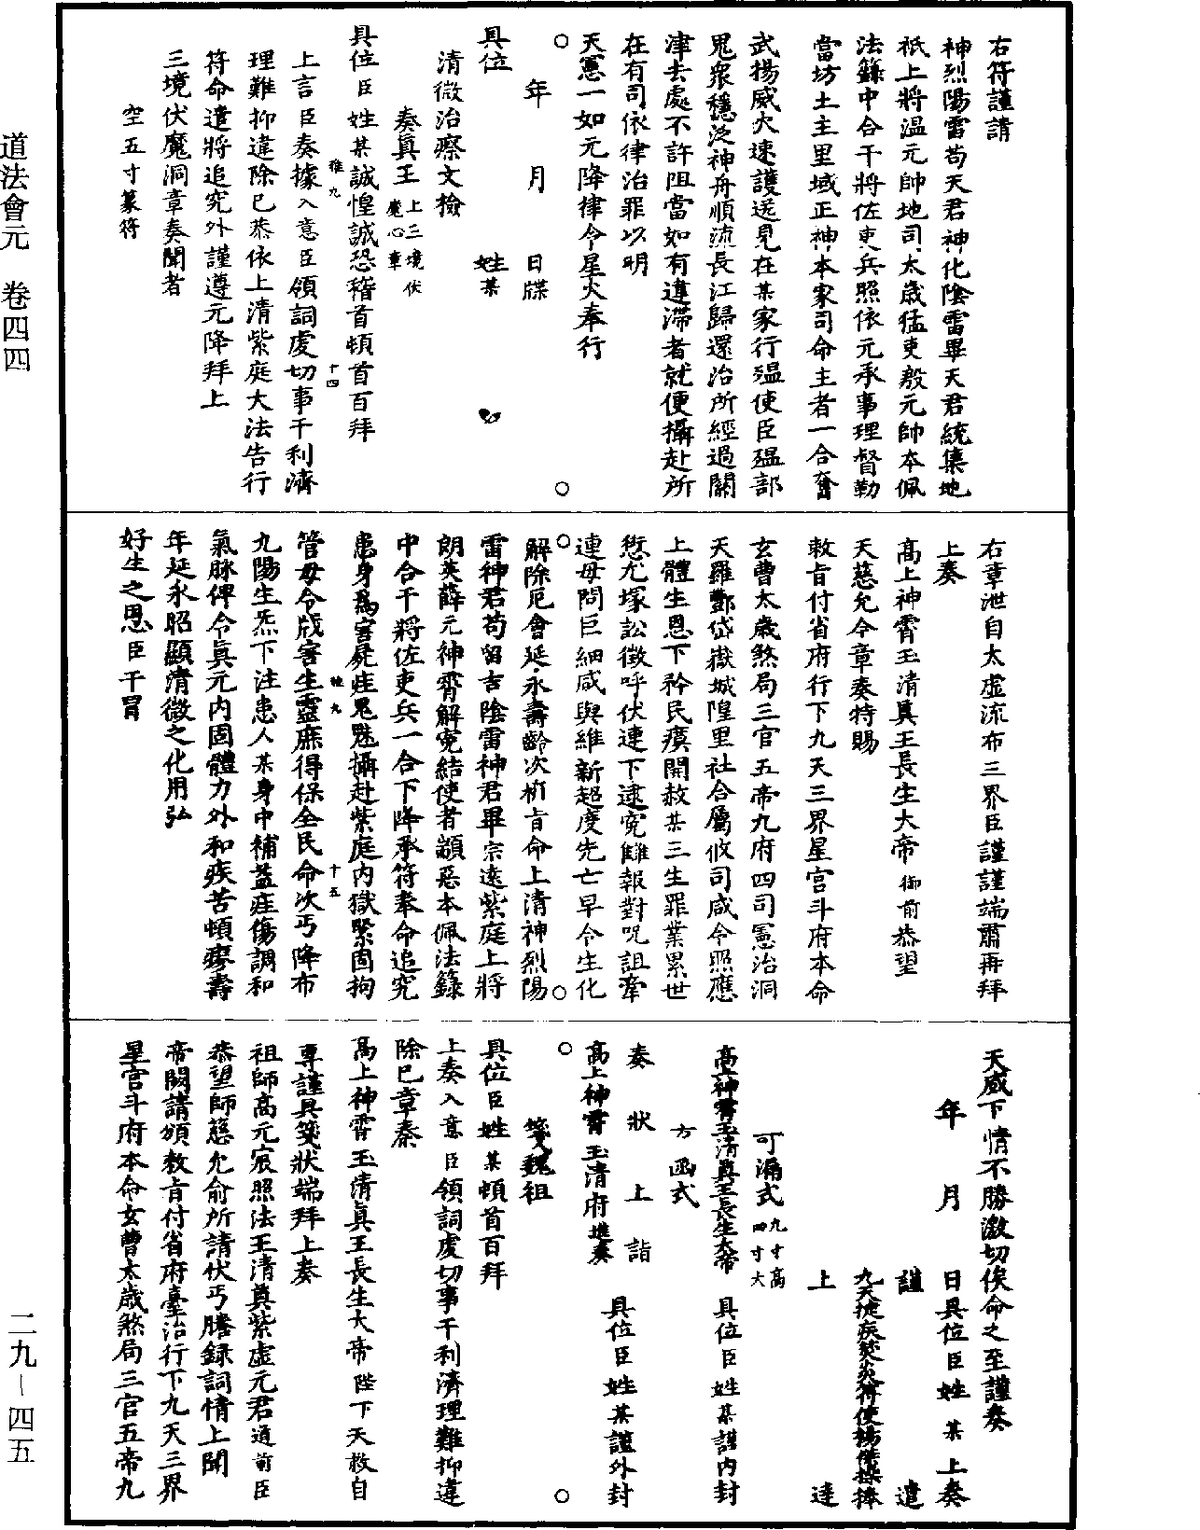 右符謹請
神烈陽雷苟天君神化陰雷畢天君統集地
祇上將溫元帥地司太歲猛吏殷元帥本佩
法籙中合干將佐吏兵照依元承事理督勒
當坊土主里域正神本家司命主者一合奮
武揚威火速護送見在某家行瘟使臣瘟部
鬼衆穩泛神舟順流長江歸還治所經過關
津去處不許阻當如有違滯者就便攝赴所
在有司依律治罪以明
天憲一如元降律令星火奉行
年 月 日牒
具位 姓某
清微治瘵文檢
奏眞王上三境伏魔心章
具位臣姓某誠惶誠恐稽首頓首百拜
上言臣奏據入意臣領詞虔切事干利濟
理難抑違除已恭依上清紫庭大法告行
符命遣將追究外謹遵元降拜上
三境伏魔洞章奏聞者
空五寸篆符
右章泄自太虛流布三界臣謹謹端肅再拜
上奏
高上神霄玉清眞王長生大帝御前恭望
天慈允今章奏特賜
敕旨付省府行下九天三界星宮斗府本命
玄曹太歲煞局三官五帝九府四司憲治洞
天羅酆岱嶽城隍里社合屬攸司咸令照應
上體生恩下矜民瘼開赦某三生罪業累世
愆尤塚訟徵呼伏連下逮寃讎報對呪詛牽
連毋問巨細咸與維新超度先亡早令生化
解除厄會延永壽齡次析旨命上清神烈陽
雷神君苟留吉陰雷神君畢宗遠紫庭上將
朗英薛元神霄解寃結使者顓惡本佩法籙
中合干將佐吏兵一合下降承符奉命追究
患身爲害屍疰鬼魅攝赴紫庭內獄緊固拘
管毋令戕害生靈庶得保全民命次丐降布
九陽生炁下注患人某身中補益疰傷調和
氣脉俾令眞元內固體力外和疾苦頓瘳壽
年延永昭顯清微之化用弘
好生之恩臣干冒
天威下情不勝激切俟命之至謹奏
年 月 日具位臣姓某上奏
謹 遣
九天捷疾焚炎符使楊傑操捧
上 達
可漏式九寸高四寸大
高上神霄玉清眞王長生大帝 具位臣姓某謹內封
方函式
奏 狀 上 詣
高上神霄玉清府進奏 具位臣姓某謹外封
箋魏祖
具位臣姓某頓首百拜
上奏入意臣領詞虔切事干利濟理難抑違
除已章奏
高上神霄玉清眞王長生大帝陛下天赦自
專謹具箋狀端拜上奏
祖師高元宸照法王清眞紫虛元君通前臣
恭望師慈允俞所請伏丐謄録詞情上聞
帝闕請頒敕旨付省府臺治行下九天三界
星宮斗府本命玄曹太歲煞局三官五帝九
道法會元 卷四四
二九—四五